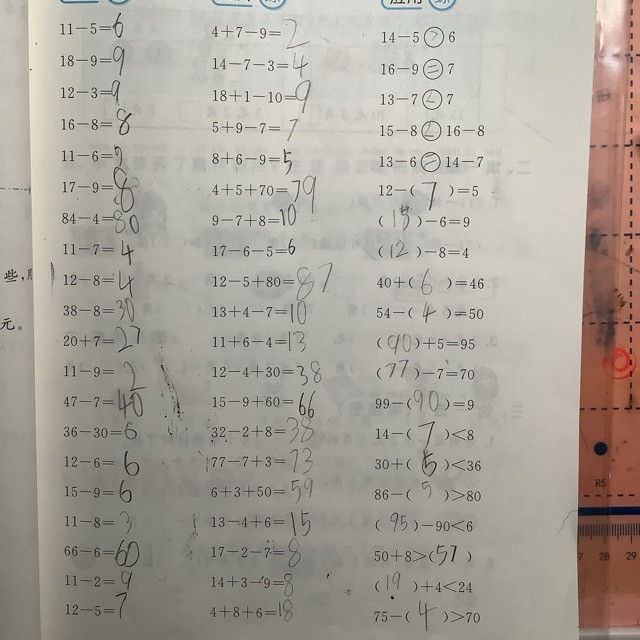 11-5=6
18-9=9
12-3=9
16-8=8
11-6=5
17-9=8
84-4=80
11-7=4
12-8=4
38-8=30
20+7=27
11-9=2
47-7=40
36-30=6
12-6=6
15-9=6
11-8=3
66-6=60
11-2=9
12-5=7
4+7-9=2
14-7-3=4
18+1-10=9
5+9-7=7
8+6-9=5
4+5+70=79
9-7+8=10
17-6-5=6
12-5+80=87
13+4-7=10
11+6-4=13
12-4+30=38
15-9+60=66
32-2+8=38
77-7+3=73
6+3+50=59
13-4+6=15
17-2-7=8
14+3-9=8
4+8+6=18
14-5>6
16-9=7
13-7<7
15-8<16-8
13-6=14-7
12-(7)=5
(15)-6=9
(12)-8=4
40+(6)=46
54-(4)=50
(90)+5=95
(77)-7=70
99-(90)=9
14-(7)<8
30+(5)<36
86-(5)>80
(95)-90<6
50+8>(57)
(19)+4<24
75-(4)>70
些,
元。
R5
27 28 29